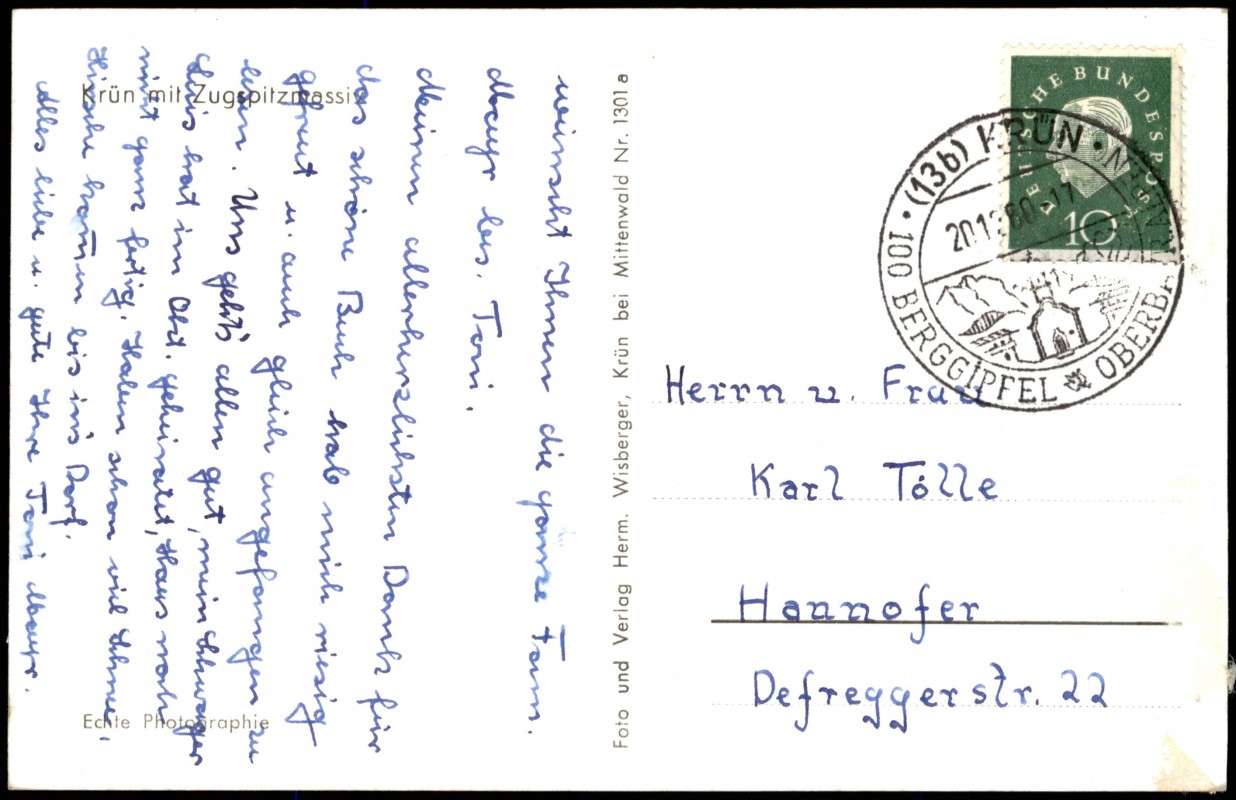 Krün mit Zugspitzmassiv
wünscht Ihnen die ganze Fam.
Mayr bes. Toni.
Meinen allerherzlichsten Dank für
das schöne Buch hab mich riesig
gfreut u. auch gleich angefangen zu
lesen. Uns geht's allen gut, mein Schwager
Luis hat im Okt. geheiratet, Haus noch
nicht ganz fertig. Haben schon viel Schnee,
Hirsche kom̄en bis ins Dorf.
Alles liebe u. gute Ihre Toni Mayr.
Echte Photographie
Foto und Verlag Herm. Wisberger, Krün bei Mittenwald Nr. 1301 a
DEUTSCHE BUNDESPOST
10
(13b) KRÜN
20.12.60-17
100 BERGGIPFEL
Herrn u. Frau
Karl Tölle
Hannofer
Defreggerstr. 22